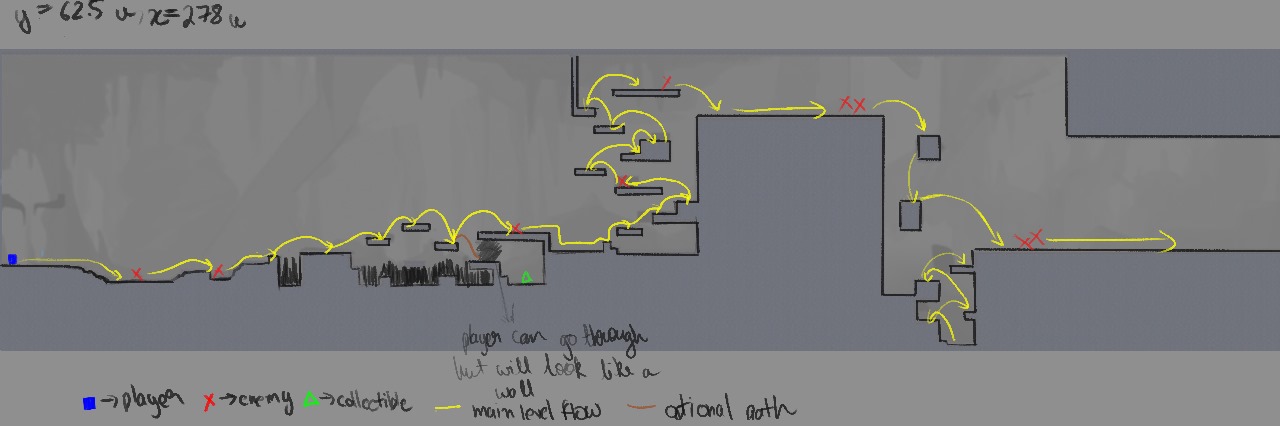 y = 62.5 u, x = 278 u
player can go through
but will look like a
wall
→ player x → enemy △ → collectible — main level flow — optional path